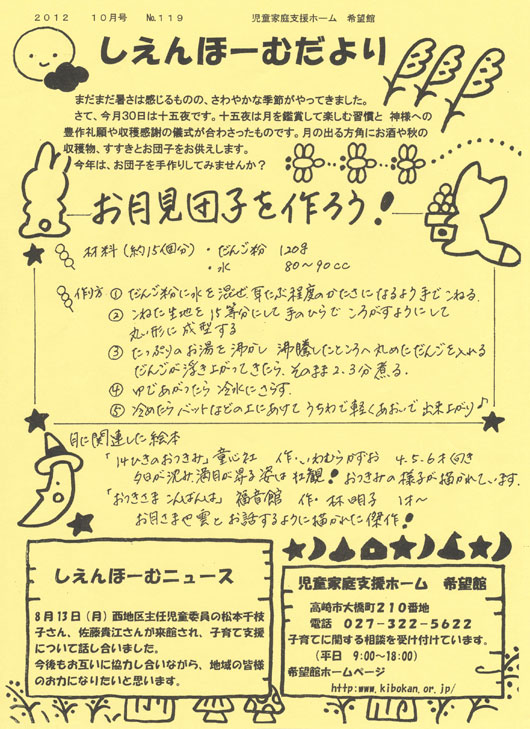 2012 10月号 No.119 児童家庭支援ホーム 希望館
しえんほーむだより
まだまだ暑さは感じるものの、さわやかな季節がやってきました。
さて、今月30日は十五夜です。十五夜は月を鑑賞して楽しむ習慣と 神様への
豊作礼願や収穫感謝の儀式が合わさったものです。月の出る方角にお酒や秋の
収穫物、すすきとお団子をお供えします。
今年は、お団子を手作りしてみませんか？
お月見団子を作ろう！
材料(約15個分)・だんご粉 120g
・水 80〜90cc
作り方 ① だんご粉に水を混ぜ、耳たぶ程度のかたさになるよう手でこねる。
② こねた生地を15等分にして手のひらでころがすようにして
丸い形に成型する
③ たっぷりのお湯を沸かし 沸騰したところへ丸めただんごを入れる
だんごが浮き上がってきたら、そのまま2.3分煮る。
④ ゆであがったら冷水にさらす。
⑤ 冷めたらバットなどの上にあけてうちわで軽くあおいで出来上がり♪
月に関連した絵本
「14ひきのおつきみ」童心社 作・いわむらかずお 4・5・6才向き
夕日が沈み満月が昇る姿は壮観！おつきみの様子が描かれています。
「おつきさまこんばんは」福音館 作・林明子 1才〜
お月さまや雲とお話するように描かれた傑作！
しえんほーむニュース
8月13日(月)西地区主任児童委員の松本千枝
子さん、佐藤貴江さんが来館され、子育て支援
について話し合いました。
今後もお互いに協力し合いながら、地域の皆様
のお力になりたいと思います。
児童家庭支援ホーム 希望館
高崎市大橋町210番地
電話 027-322-5622
子育てに関する相談を受け付けています。
(平日 9:00〜18:00)
希望館ホームページ
http:www.kibokan.or.jp/